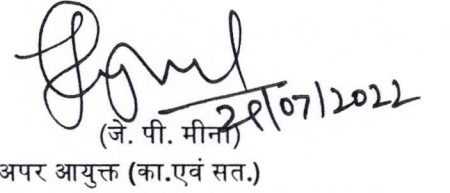 29/07/2022
(जे. पी. मीना)
अपर आयुक्त (का.एवं सत.)